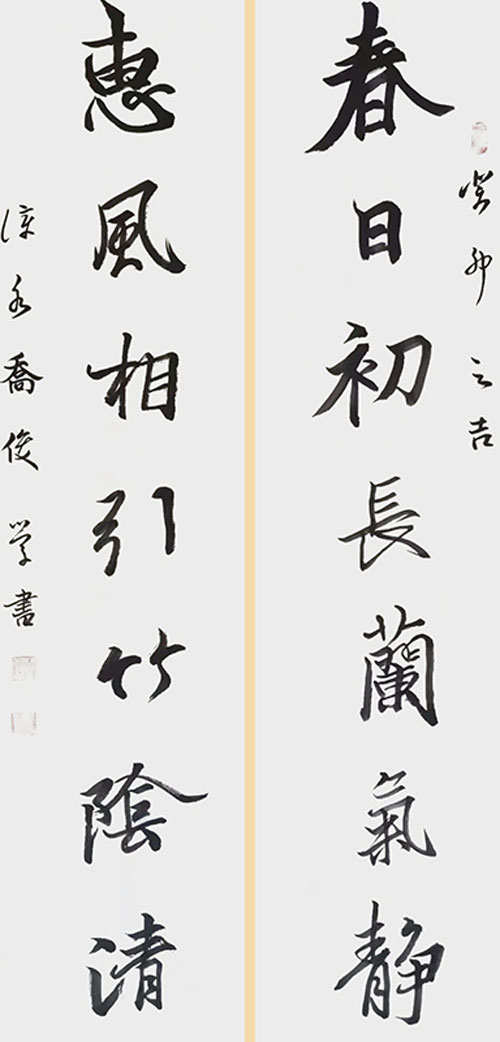 癸卯之吉
春日初長蘭氣静
惠風相引竹陰清
喬俊學書